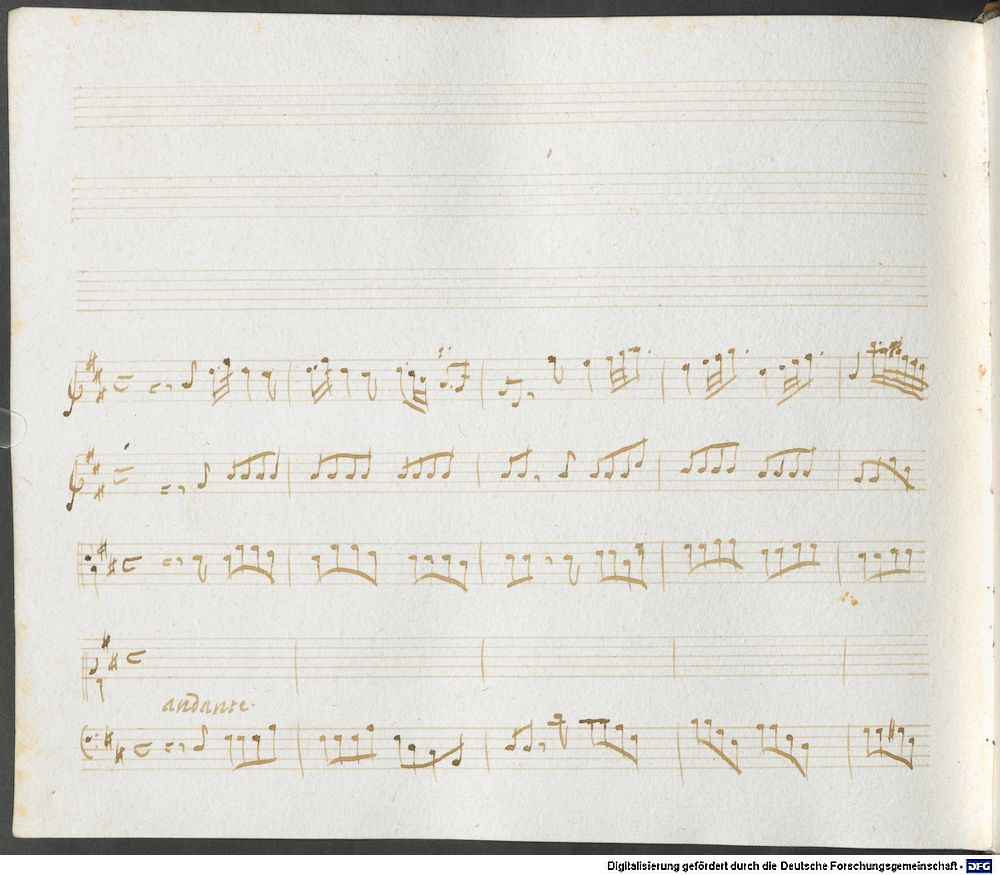 andante.
Digitalisierung gefördert durch die Deutsche Forschungsgemeinschaft - DFG